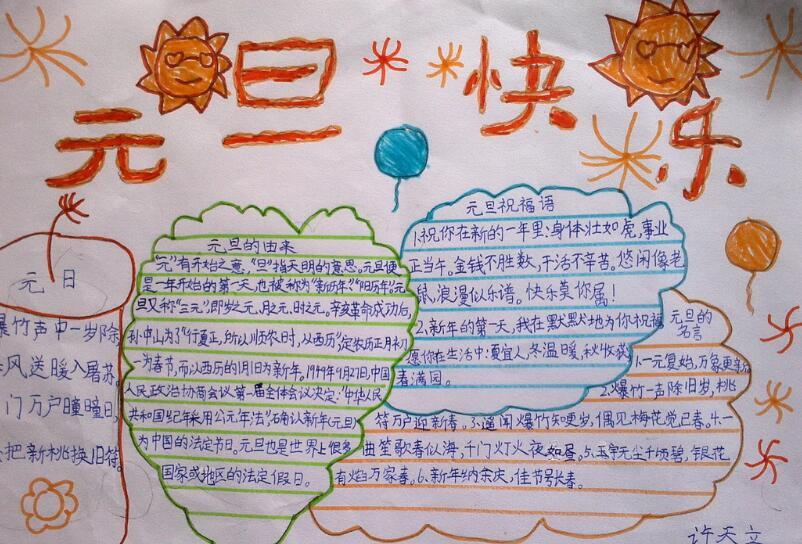 元旦快乐
元日
爆竹声中一岁除
风送暖入屠苏
门万户曈曈日
把新桃换旧符
元旦的由来
"元"有开始之意,"旦"指天明的意思。元旦便
是一年开始的第一天,也被称为"新历年""阳历年"。元
旦又称"三元",即岁之元、月之元、时之元。辛亥革命成功后,
孙中山为了"行夏正,所以顺农时,从西历"定农历正月初
一为春节,而以西历的1月1日为新年。1949年9月27日,中国
人民政治协商会议第一届全体会议决定:"中华人民
共和国纪年采用公元年法"确认新年(元旦)
为中国的法定节日。元旦也是世界上很多
国家或地区的法定假日。
元旦祝福语
1.祝你在新的一年里:身体壮如虎,事业
正当午。金钱不胜数,干活不辛苦。悠闲像老
鼠,浪漫似乐谱。快乐美你属!
2.新年的第一天,我在默默地为你祝福
愿你在生活中:夏宜人,冬温暖,秋收获
春满园。
元旦的
名言
1.一元复始,万象更新
2.爆竹一声除旧岁,桃
符万户迎新春。3.遥闻爆竹知更岁,偶见梅花觉已春。4.一
曲笙歌春似海,千门灯火夜如昼。5.玉宇无尘千顷碧,银花
有焰万家春。6.新年纳余庆,佳节号长春。
许天立